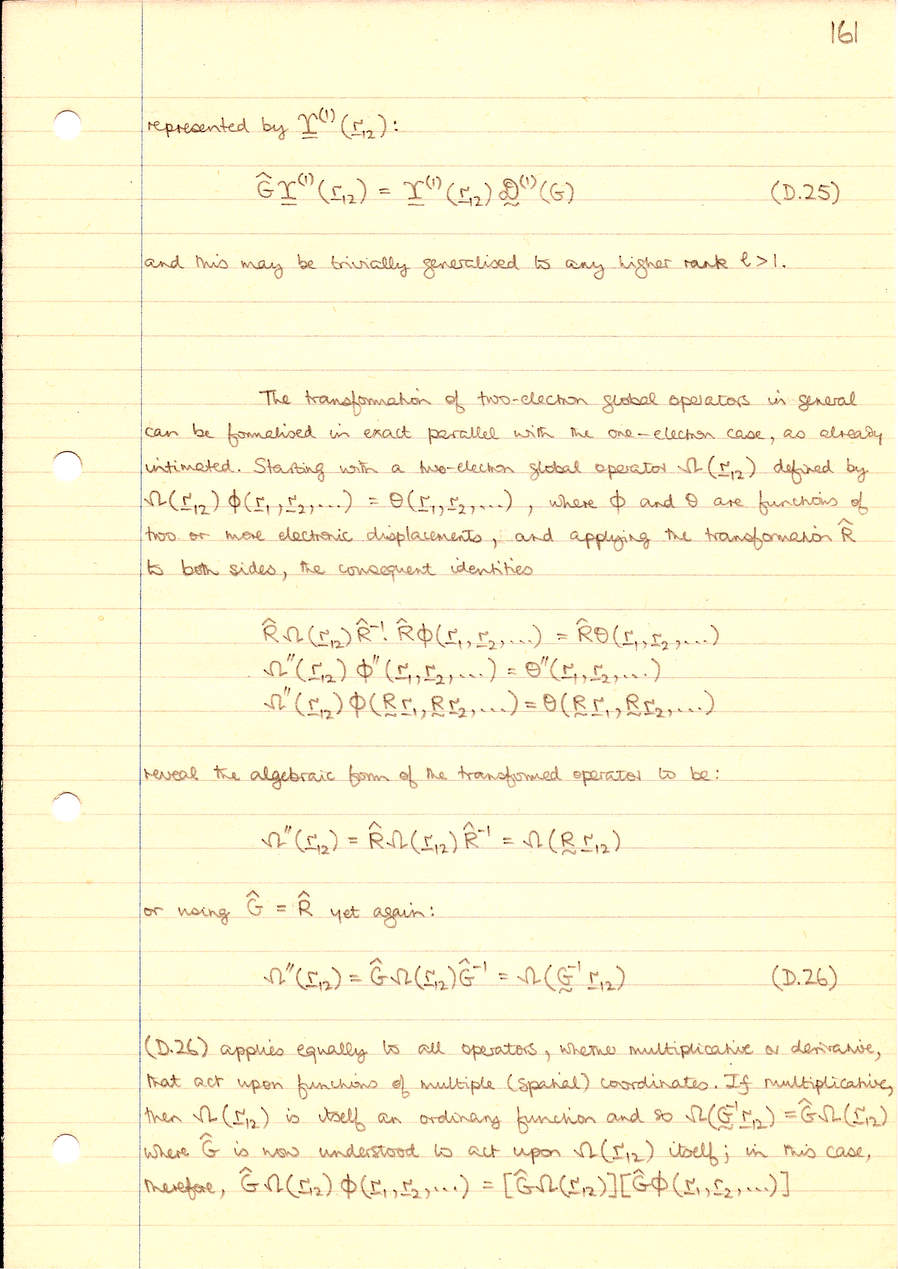 161
represented by ϒ̲⁽¹⁾(r̲₁₂):
Ĝϒ̲⁽¹⁾(r̲₁₂) = ϒ̲⁽¹⁾(r̲₁₂) D̰⁽¹⁾(G) (D.25)
and this may be trivially generalised to any higher rank ℓ>1.
The transformation of two-electron global operators in general
can be formalised in exact parallel with the one-electron case, as already
intimated. Starting with a two-electron global operator Ω(r̲₁₂) defined by
Ω(r̲₁₂) ϕ(r̲₁,r̲₂,...) = θ(r̲₁,r̲₂,...), where ϕ and θ are functions of
two or more electronic displacements, and applying the transformation R̂
to both sides, the consequent identities
R̂Ω(r̲₁₂)R̂⁻¹. R̂ϕ(r̲₁,r̲₂,...) = R̂θ(r̲₁,r̲₂,...)
Ω″(r̲₁₂) ϕ″(r̲₁,r̲₂,...) = θ″(r̲₁,r̲₂,...)
Ω″(r̲₁₂) ϕ(R̰r̲₁,R̰r̲₂,...) = θ(R̰r̲₁,R̰r̲₂,...)
reveal the algebraic form of the transformed operator to be:
Ω″(r̲₁₂) = R̂Ω(r̲₁₂)R̂⁻¹ = Ω(R̰r̲₁₂)
or using Ĝ = R̂ yet again:
Ω″(r̲₁₂) = ĜΩ(r̲₁₂)Ĝ⁻¹ = Ω(G̰⁻¹r̲₁₂) (D.26)
(D.26) applies equally to all operators, whether multiplicative or derivative,
that act upon functions of multiple (spatial) coordinates. If multiplicative,
then Ω(r̲₁₂) is itself an ordinary function and so Ω(G̰⁻¹r̲₁₂) = ĜΩ(r̲₁₂)
where Ĝ is now understood to act upon Ω(r̲₁₂) itself; in this case,
therefore, ĜΩ(r̲₁₂) ϕ(r̲₁,r̲₂,...) = [ĜΩ(r̲₁₂)][Ĝϕ(r̲₁,r̲₂,...)]